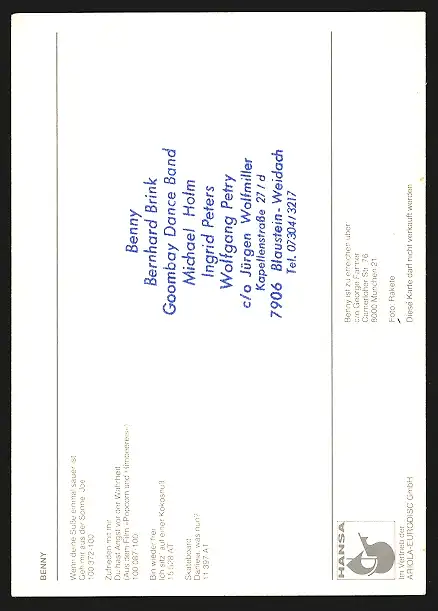 BENNY
Wenn deine Süße einmal sauer ist
Geh mir aus der Sonne, Joe
100 372-100
Zufrieden mit mir
Du hast Angst vor der Wahrheit
(aus dem Film »Popcorn und Himbeereis«)
100 067-100
Bin wieder frei
Ich sitz' auf einer Kokosnuß
15 528 AT
Skateboard
Damela, was nun?
11 897 AT
Benny
Bernhard Brink
Goombay Dance Band
Michael Holm
Ingrid Peters
Wolfgang Petry
c/o Jürgen Wolfmiller
Kapellenstraße 27/d
7906 Blaustein-Weidach
Tel. 07304/3217
Benny ist zu erreichen über:
c/o George Farmer
Camerloher Str. 76
8000 München 21
Foto: Rakete
Diese Karte darf nicht verkauft werden
HANSA
Im Vertrieb der
ARIOLA-EURODISC GmbH